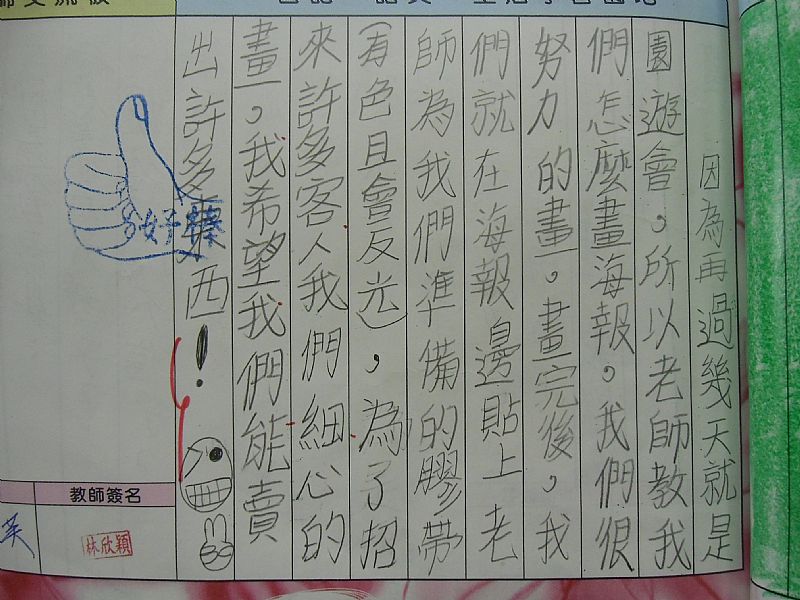 因為再過幾天就是
園遊會，所以老師教我
們怎麼畫海報。我們很
努力的畫。畫完後，我
們就在海報邊貼上老
師為我們準備的膠帶
(有色且會反光)，為了招
來許多客人我們細心的
畫。我希望我們能賣
出許多東西！
好棒
教師簽名
林欣穎